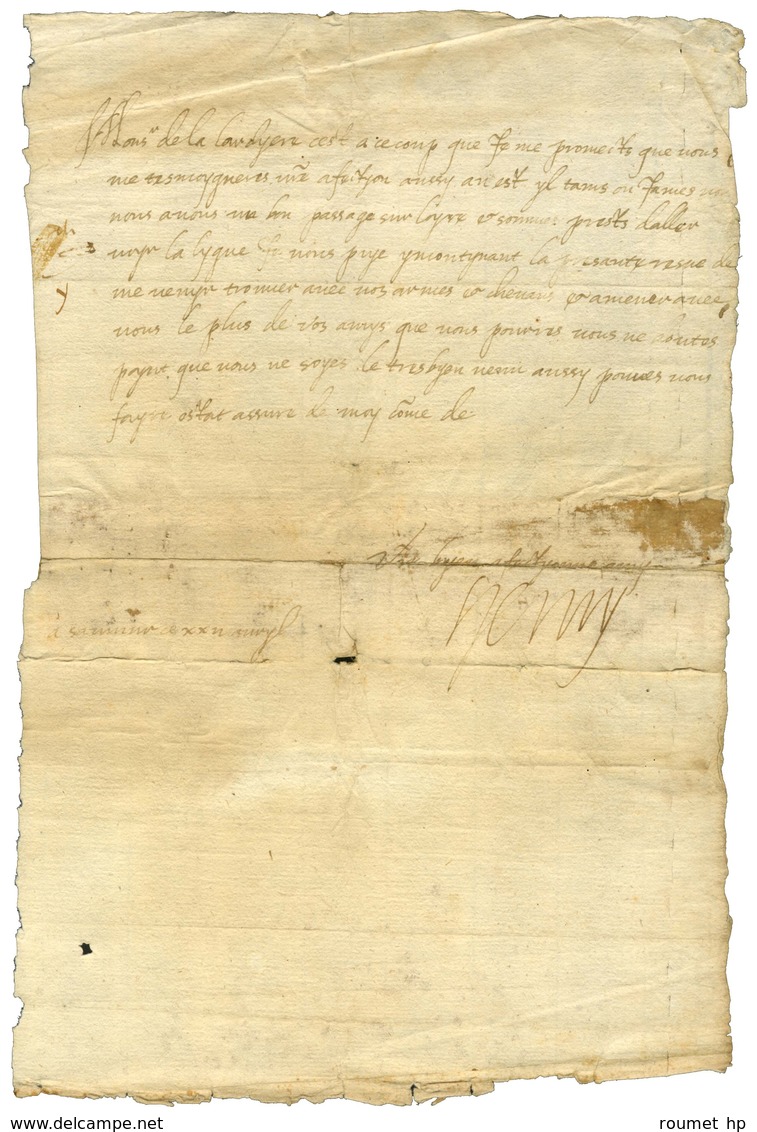 Mons.r de la Cardyere cest a ce coup que Je me promects que vous
me tesmoygneres vr̃e afectyon aussy an est yl tams ou James
nous avons un bon passage sur loyre et sommes prests daller
voyr la lygue Je vous prye yncontynant la presante resue de
me venyr trouver avec vos armes et chevaus et amener avec
vous le plus de vos amys que vous pourres vous ne doutes
poynt que vous ne soyes le tresbyen venu aussy pouves vous
fayre estat assure de moy cõme de
Vr̃e byen afectyonne amy
Henry
a saumur ce xxii avryl
roumet hp